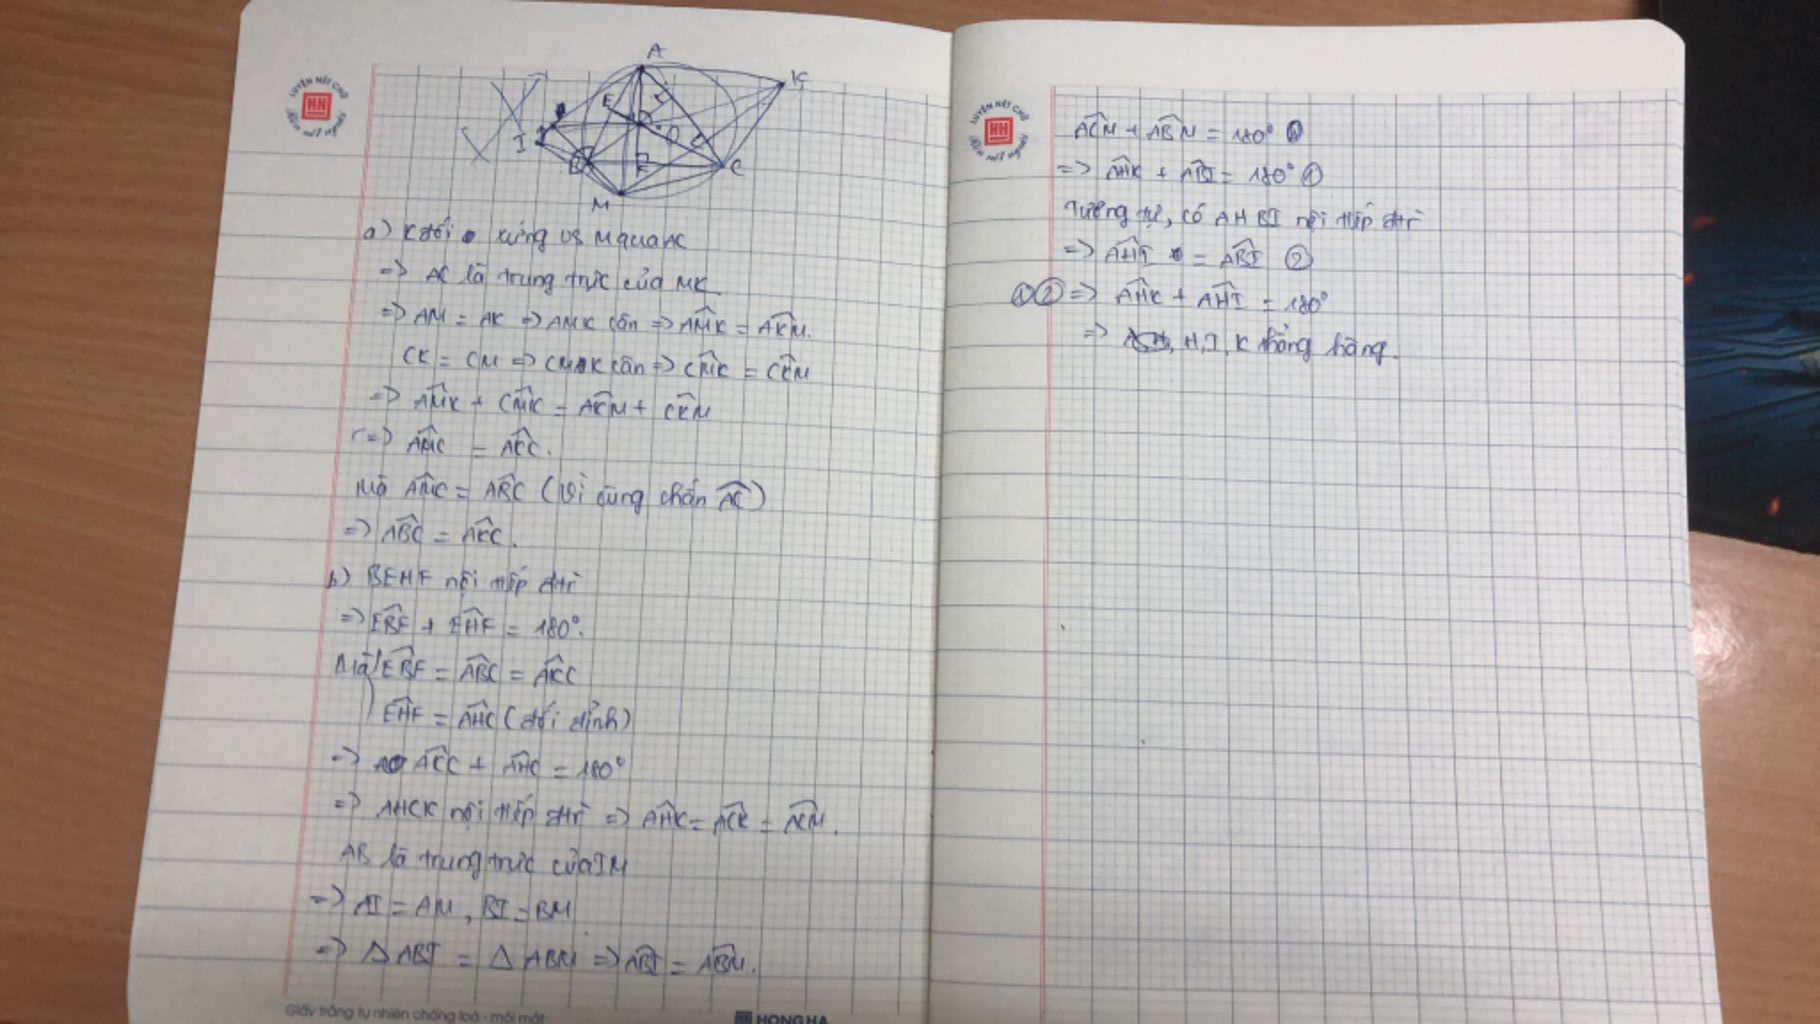 LUYỆN NÉT CHỮ
HH
Rèn nết người
A
K
E
O
I
C
F
M
a) K đối xứng vs M qua AC
=> AC là trung trực của MK.
=> AM = AK => AMK cân => AMK = AKM.
CK = CM => CMK cân => CMK = CKM
=> AMK + CMK = AKM + CKM
(=> AMC = AKC.
Mà AMC = ABC (Vì cùng chắn AC)
=> ABC = AKC.
b) BEHF nội tiếp đtr
=> EBF + EHF = 180°.
Mà EBF = ABC = AKC
EHF = AHC (đối đỉnh)
=> AKC + AHC = 180°
=> AHCK nội tiếp đtr => AHK = ACK = ACM.
AB là trung trực của IM
=> AI = AM, BI = BM
=> Δ ABI = Δ ABM => ABI = ABM.
Giấy trắng tự nhiên chống loá - mỏi mắt
HONG HA
LUYỆN NÉT CHỮ
HH
Rèn nết người
ACM + ABM = 180°
=> AHK + ABI = 180° ①
Tương tự, có AHBI nội tiếp đtr
=> AHI = ABI ②
①② => AHK + AHI = 180°
=> H, I, K thẳng hàng.